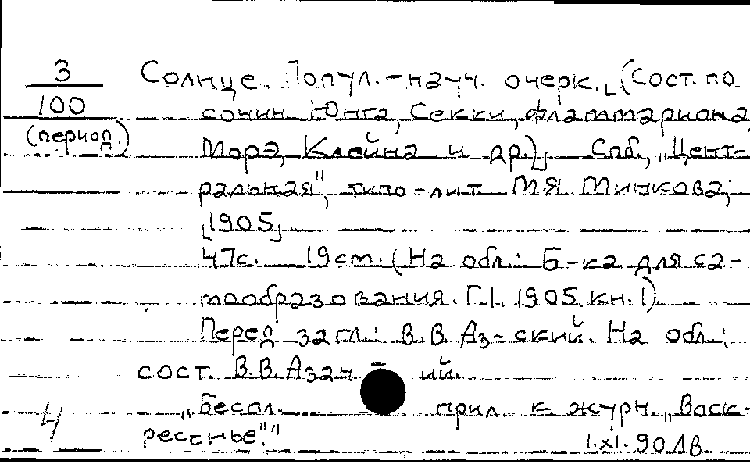 3
100
(период.)
Солнце. Попул.-науч. очерк. (Сост. по
сочин. Юнга, Секки, Фламмариона,
Морэ, Клейна и др.) Спб, "Цент-
ральная", типо-лит. М.Я. Минкова,
[1905]
47с. 19см. (На обл.: Б-ка для са-
мообразования. Г.1. 1905. кн.1)
Перед загл.: В.В. Аз-ский. На обл.:
сост. В.В. ий.
"Беспл. прил. к журн. "Воск-
ресенье"."
4
1.XI.90